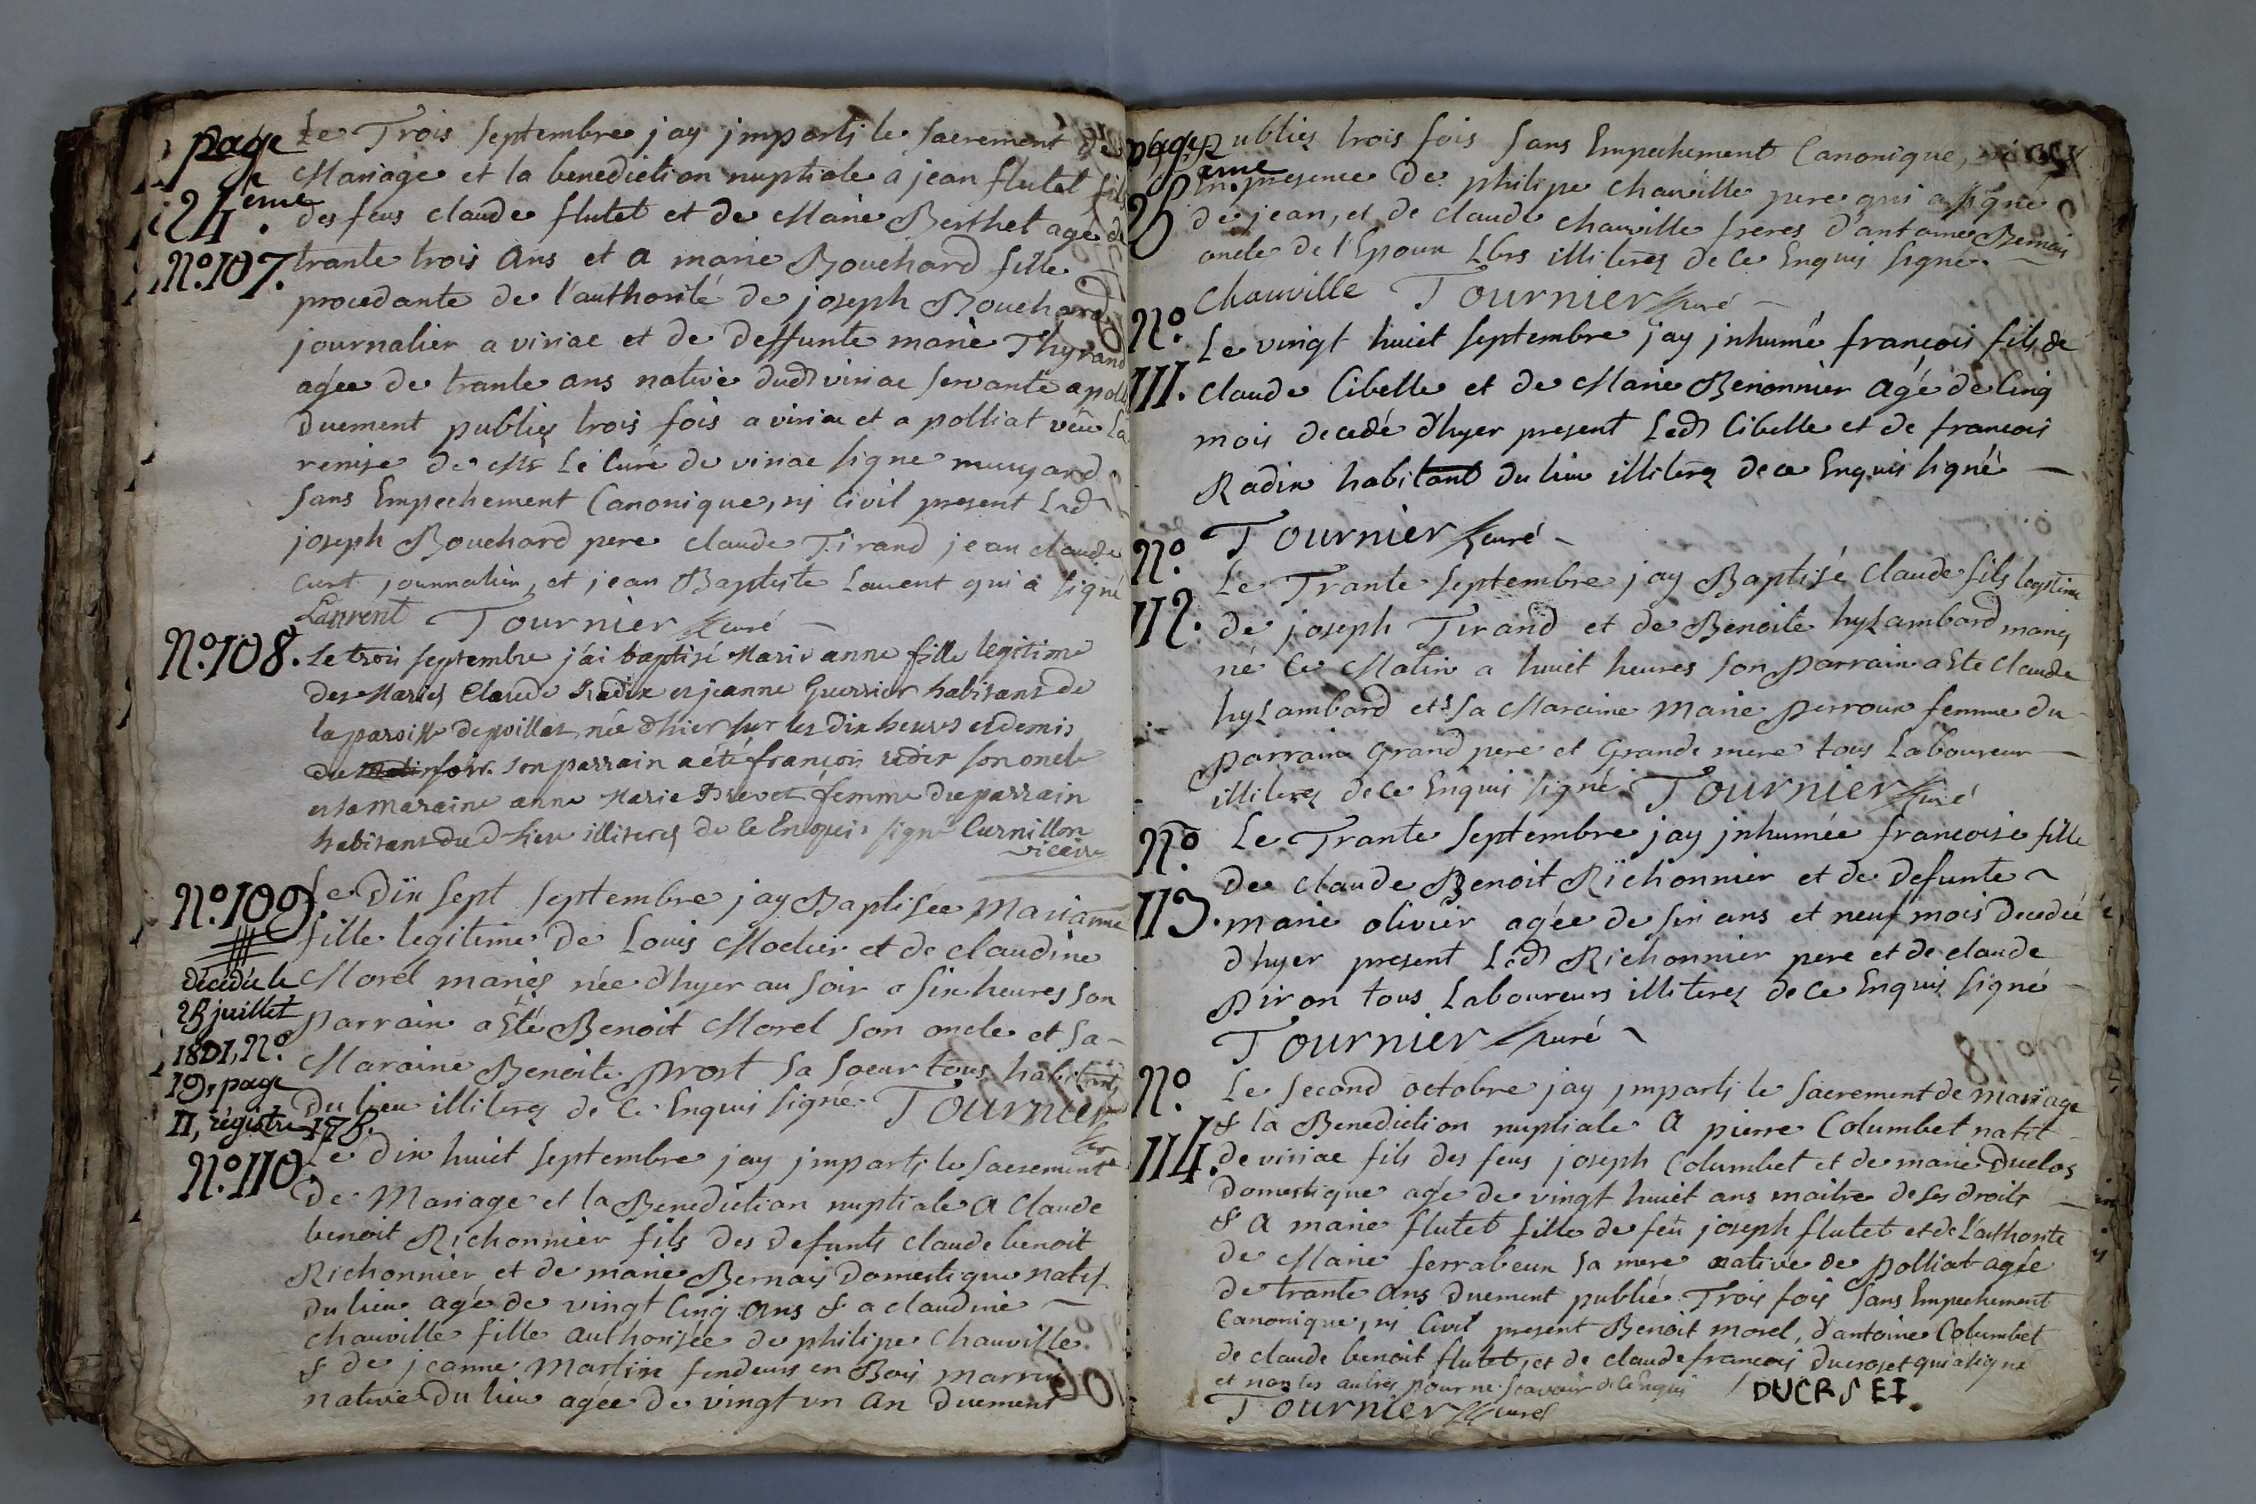 page
24eme.
No.107.
Le Trois Septembre jay jmparti le Sacrement de
Mariage et la benediction nuptiale a jean flutet fils
des feus claude flutet et de Marie Berthet age de
trante trois ans et a marie Bouchard fille
procedante de l'authorité de joseph Bouchard
journalier a viriac et de deffunte marie Thyrand
agée de trante ans native dud viriac servante a poll
duement publiez trois fois a viriac et a polliat veu La
remise de Mr Le Curé de viriac signe
Sans Empechement Canonique, ni Civil present Led
joseph Bouchard pere claude Tirand jean claude
curt journalier, et jean Baptiste Laurent qui a signé
Laurent Tournier curé
No.108.
Le trois septembre j'ai baptisé Marie anne fille legitime
des Mariés Claude Radix et jeanne Guerrier habitans de
la paroisse de poillat, née d'hier sur les dix heures et demis
du soir. son parrain a été françois radix son oncle
et sa Maraine anne Marie Brevet femme du parrain
habitans dud lieu illiteres de ce Enquis signé Curnillon
vicaire
No.109.
Le Dix sept Septembre jay Baptisée Marianne
fille legitime de Louis Mochier et de claudine
Morel mariés née d'hyer au soir a six heures son
parrain a Eté Benoit Morel son oncle et sa
Maraine Benoite prost sa soeur tous habitants
du lieu illiterez de ce Enquis signé. Tournier
curé
décédée le
25 juillet
1801, No.
19, page
11, régistre 178.
No.110.
Le Dix huict Septembre jay jmparti le Sacrement
de Mariage et la Benediction nuptiale a Claude
benoit Richonnier fils des defunts claude benoit
Richonnier et de marie Bernais Domestique natif
du lieu agé de vingt Cinq ans & a claudine
chauville fille authorisée de philipe Chauville
& de jeanne Martin fendeurs en Bois marrin
native du lieu agée de vingt un an duement
page
25eme
publiez trois fois Sans Empechement Canonique,
En presence de philipe chauville pere qui a signé
de jean, et de claude chauville freres d'antoine Bernais
oncle de l'Epoux Lbrs illiterez de Ce Enquis signé.
Chauville Tournier curé
No.
111.
Le vingt huict Septembre jay jnhumé françois fils de
claude Cibelle et de Marie Benonnier agé de Cinq
mois decedé d'hyer present Led Cibelle et de françois
Radix habitant du lieu illiterez de ce Enquis signé
Tournier curé
No.
112.
Le Trante Septembre jay Baptisé Claude fils legitime
de joseph Tirand et de Benoite hyLambard mariez
né ce Matin a huict heures son parrain a Ete Claude
hyLambard et sa Maraine Marie perroux femme du
parrain grand pere et grande mere tous Laboureur
illiterez de ce Enquis signé Tournier curé
No.
113.
Le Trante Septembre jay jnhumée françoise fille
de claude Benoit Richonnier et de defunte
marie olivier agée de six ans et neuf mois decedée
d'hyer present Led Richonnier pere et de claude
piron tous Laboureurs illiterez de ce Enquis signé
Tournier curé
No.
114.
Le second octobre jay jmparti le Sacrement de mariage
& la Benediction nuptiale a pierre Columbet natif
de viriac fils des feus joseph Columbet et de marie Duclos
domestique agé de vingt huict ans maitre de ses droits
& a marie flutet fille de feu joseph flutet et de l'authorite
de Marie ferrabeux sa mere native de polliat agée
de trante ans duement publié Trois fois Sans Empechement
Canonique, ni Civil present Benoit morel, d'antoine Columbet
de claude benoit flutet, et de claude françois ducroset qui a signé
et non les autres pour ne scavoir de ce Enquis
DUCRSEI.
Tournier curé